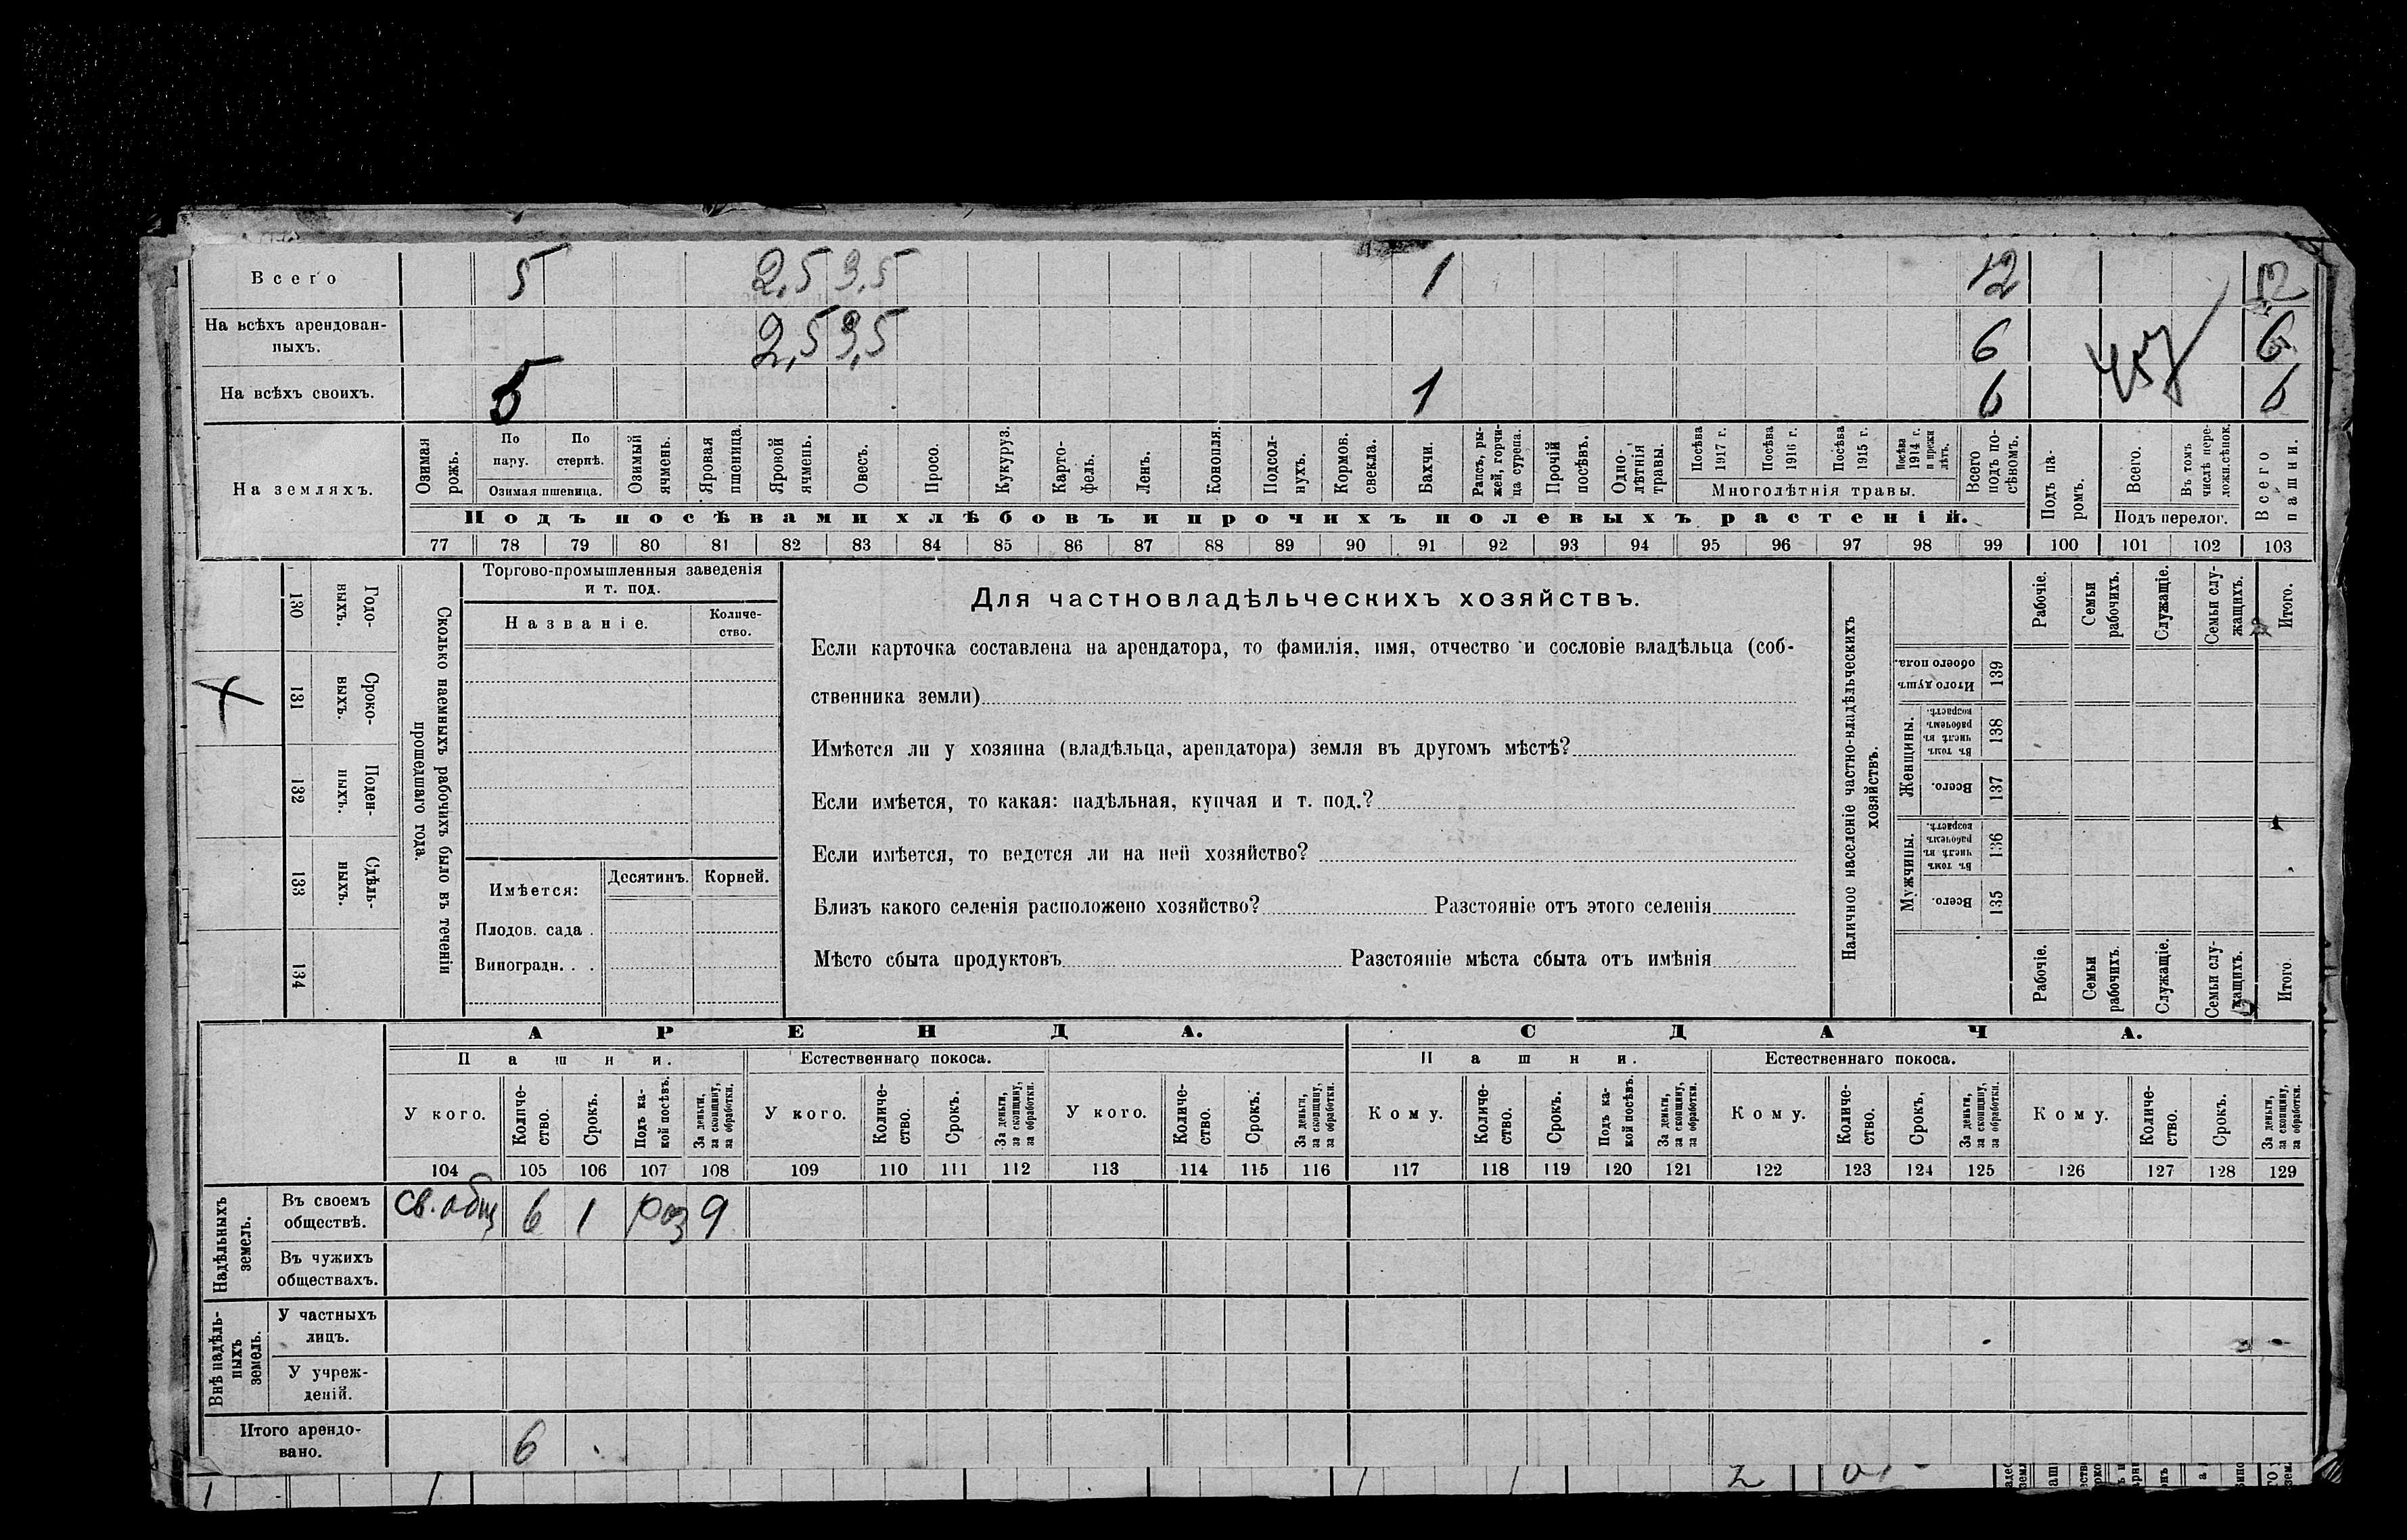 Всего 5 2,5 3,5 1 12 12
На всѣхъ арендован-
ныхъ. 2,5 3,5 6 6
На всѣхъ своихъ. 5 1 6 6
457
На земляхъ.
Озимая рожь.
По пару.
По стернѣ.
Озимая пшеница.
Озимый ячмень.
Яровая пшеница.
Яровой ячмень.
Овесъ.
Просо.
Кукуруз.
Карто-
фель.
Ленъ.
Конопля.
Подсол-
нухъ.
Кормов.
свекла.
Бахчи.
Рапсъ, ры-
жей, горчи-
ца сурепа.
Прочій
посѣвъ.
Одно-
лѣтнія
травы.
Посѣва
1917 г.
Посѣва
1916 г.
Посѣва
1915 г.
Посѣва
1914 г.
и прежн
лѣтъ.
Многолѣтнія травы.
Всего
подъ по-
сѣвомъ.
Подъ па-
ромъ.
Всего.
Въ томъ
числѣ пере-
ложн.сѣнок.
Подъ перелог.
Всего
пашни.
Подъ посѣвами хлѣбовъ и прочихъ полевыхъ растеній.
77 78 79 80 81 82 83 84 85 86 87 88 89 90 91 92 93 94 95 96 97 98 99 100 101 102 103
130 Годо-
выхъ.
131 Сроко-
выхъ.
132 Поден-
ныхъ.
133 Сдѣль-
ныхъ.
134
Сколько наемныхъ рабочихъ было въ теченіи
прошедшаго года.
Торгово-промышленныя заведенія
и т. под.
Названіе.
Количе-
ство.
Имѣется: Десятинъ. Корней.
Плодов. сада .
Виноградн. . .
Для частновладѣльческихъ хозяйствъ.
Если карточка составлена на арендатора, то фамилія, имя, отчество и сословіе владѣльца (соб-
ственника земли)
Имѣется ли у хозяина (владѣльца, арендатора) земля въ другомъ мѣстѣ?
Если имѣется, то какая: надѣльная, купчая и т. под.?
Если имѣется, то ведется ли на ней хозяйство?
Близъ какого селенія расположено хозяйство? Разстояніе отъ этого селенія
Мѣсто сбыта продуктовъ Разстояніе мѣста сбыта отъ имѣнія
Наличное населеніе частно-владѣльческихъ
хозяйствъ.
Рабочіе.
Семьи
рабочихъ.
Служащіе.
Семьи слу-
жащихъ.
Итого.
Итого душъ
обоего пола. 139
Женщины.
Въ томъ
числѣ въ
рабочемъ
возрастѣ. 138
Всего. 137
Мужчины.
Въ томъ
числѣ въ
рабочемъ
возрастѣ. 136
Всего. 135
Рабочіе.
Семьи
рабочихъ.
Служащіе.
Семьи слу-
жащихъ.
Итого.
АРЕНДА. СДАЧА.
Пашни. Естественнаго покоса. Пашни. Естественнаго покоса.
У кого.
Количе-
ство.
Срокъ.
Подъ ка-
кой посѣвъ.
За деньги,
за скопщину,
за обработки.
У кого.
Количе-
ство.
Срокъ.
За деньги,
за скопщину,
за обработки.
У кого.
Количе-
ство.
Срокъ.
За деньги,
за скопщину,
за обработки.
Кому.
Количе-
ство.
Срокъ.
Подъ ка-
кой посѣвъ.
За деньги,
за скопщину,
за обработки.
Кому.
Количе-
ство.
Срокъ.
За деньги,
за скопщину,
за обработки.
Кому.
Количе-
ство.
Срокъ.
За деньги,
за скопщину,
за обработки.
104 105 106 107 108 109 110 111 112 113 114 115 116 117 118 119 120 121 122 123 124 125 126 127 128 129
Надѣльныхъ
земель.
Въ своемъ
обществѣ. св. общ 6 1 раз 9
Въ чужихъ
обществахъ.
Внѣ надѣль-
ныхъ
земель.
У частныхъ
лицъ.
У учреж-
деній.
Итого арендо-
вано. 6